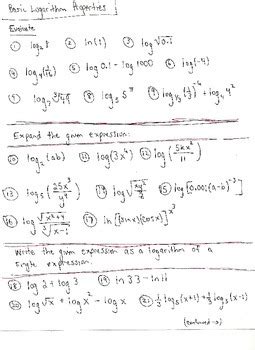 Basic Logarithm Properties
Evaluate
① log₂ 8 ② ln(1) ③ log √0.1
④ log₄(1/16) ⑤ log 0.1 - log 1000 ⑥ log(-5)
⑦ log₇ ⑧ log₅ 5^π ⑨ log_{1/3} (1/3)^{-6} + log₄ 4²
Expand the given expression:
⑩ log₂ (ab) ⑪ log(3x⁴) ⑫ log(5kx²/11)
⑬ log₅(25x³/y⁴) ⑭ log √(xy³/z) ⑮ log[0.001(a-b)⁻³]
⑯ log ⑰ ln [(sinx)(cosx)]^{x³}
Write the given expression as a logarithm of a
single expression.
⑱ log 2 + log 3 ⑲ ln 33 - ln 11
⑳ log √x + log x² - log x 21. 1/3 log₅(x+1) + 1/3 log₅(x-1)
(continued →)